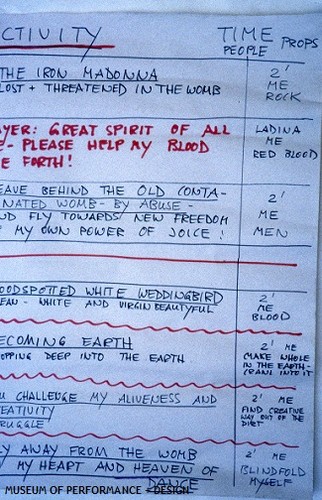 CTIVITY
TIME PROPS
PEOPLE
THE IRON MADONNA
LOST + THREATENED IN THE WOMB
2'
ME
ROCK
AYER: GREAT SPIRIT OF ALL
- PLEASE HELP MY BLOOD
E FORTH!
LADINA
ME
RED BLOOD
EAVE BEHIND THE OLD CONTA-
NATED WOMB - BY ABUSE -
ND FLY TOWARDS NEW FREEDOM
F MY OWN POWER OF JOICE!
2'
ME
MEN
OODSPOTTED WHITE WEDDINGBIRD
EAN - WHITE AND VIRGIN BEAUTYFUL
2'
ME
BLOOD
ECOMING EARTH
OPPING DEEP INTO THE EARTH
2' ME
MAKE WHOLE
IN THE EARTH-
CRAWL INTO IT
U CHALLENGE MY ALIVENESS AND
EATIVITY
RUGGLE
2' ME
FIND CREATIVE
WAY OUT OF THE
LY AWAY FROM THE WOMB
MY HEART AND HEAVEN OF
DANCE
2' ME
BLINDFOLD
MYSELF
MUSEUM OF PERFORMANCE + DESIGN